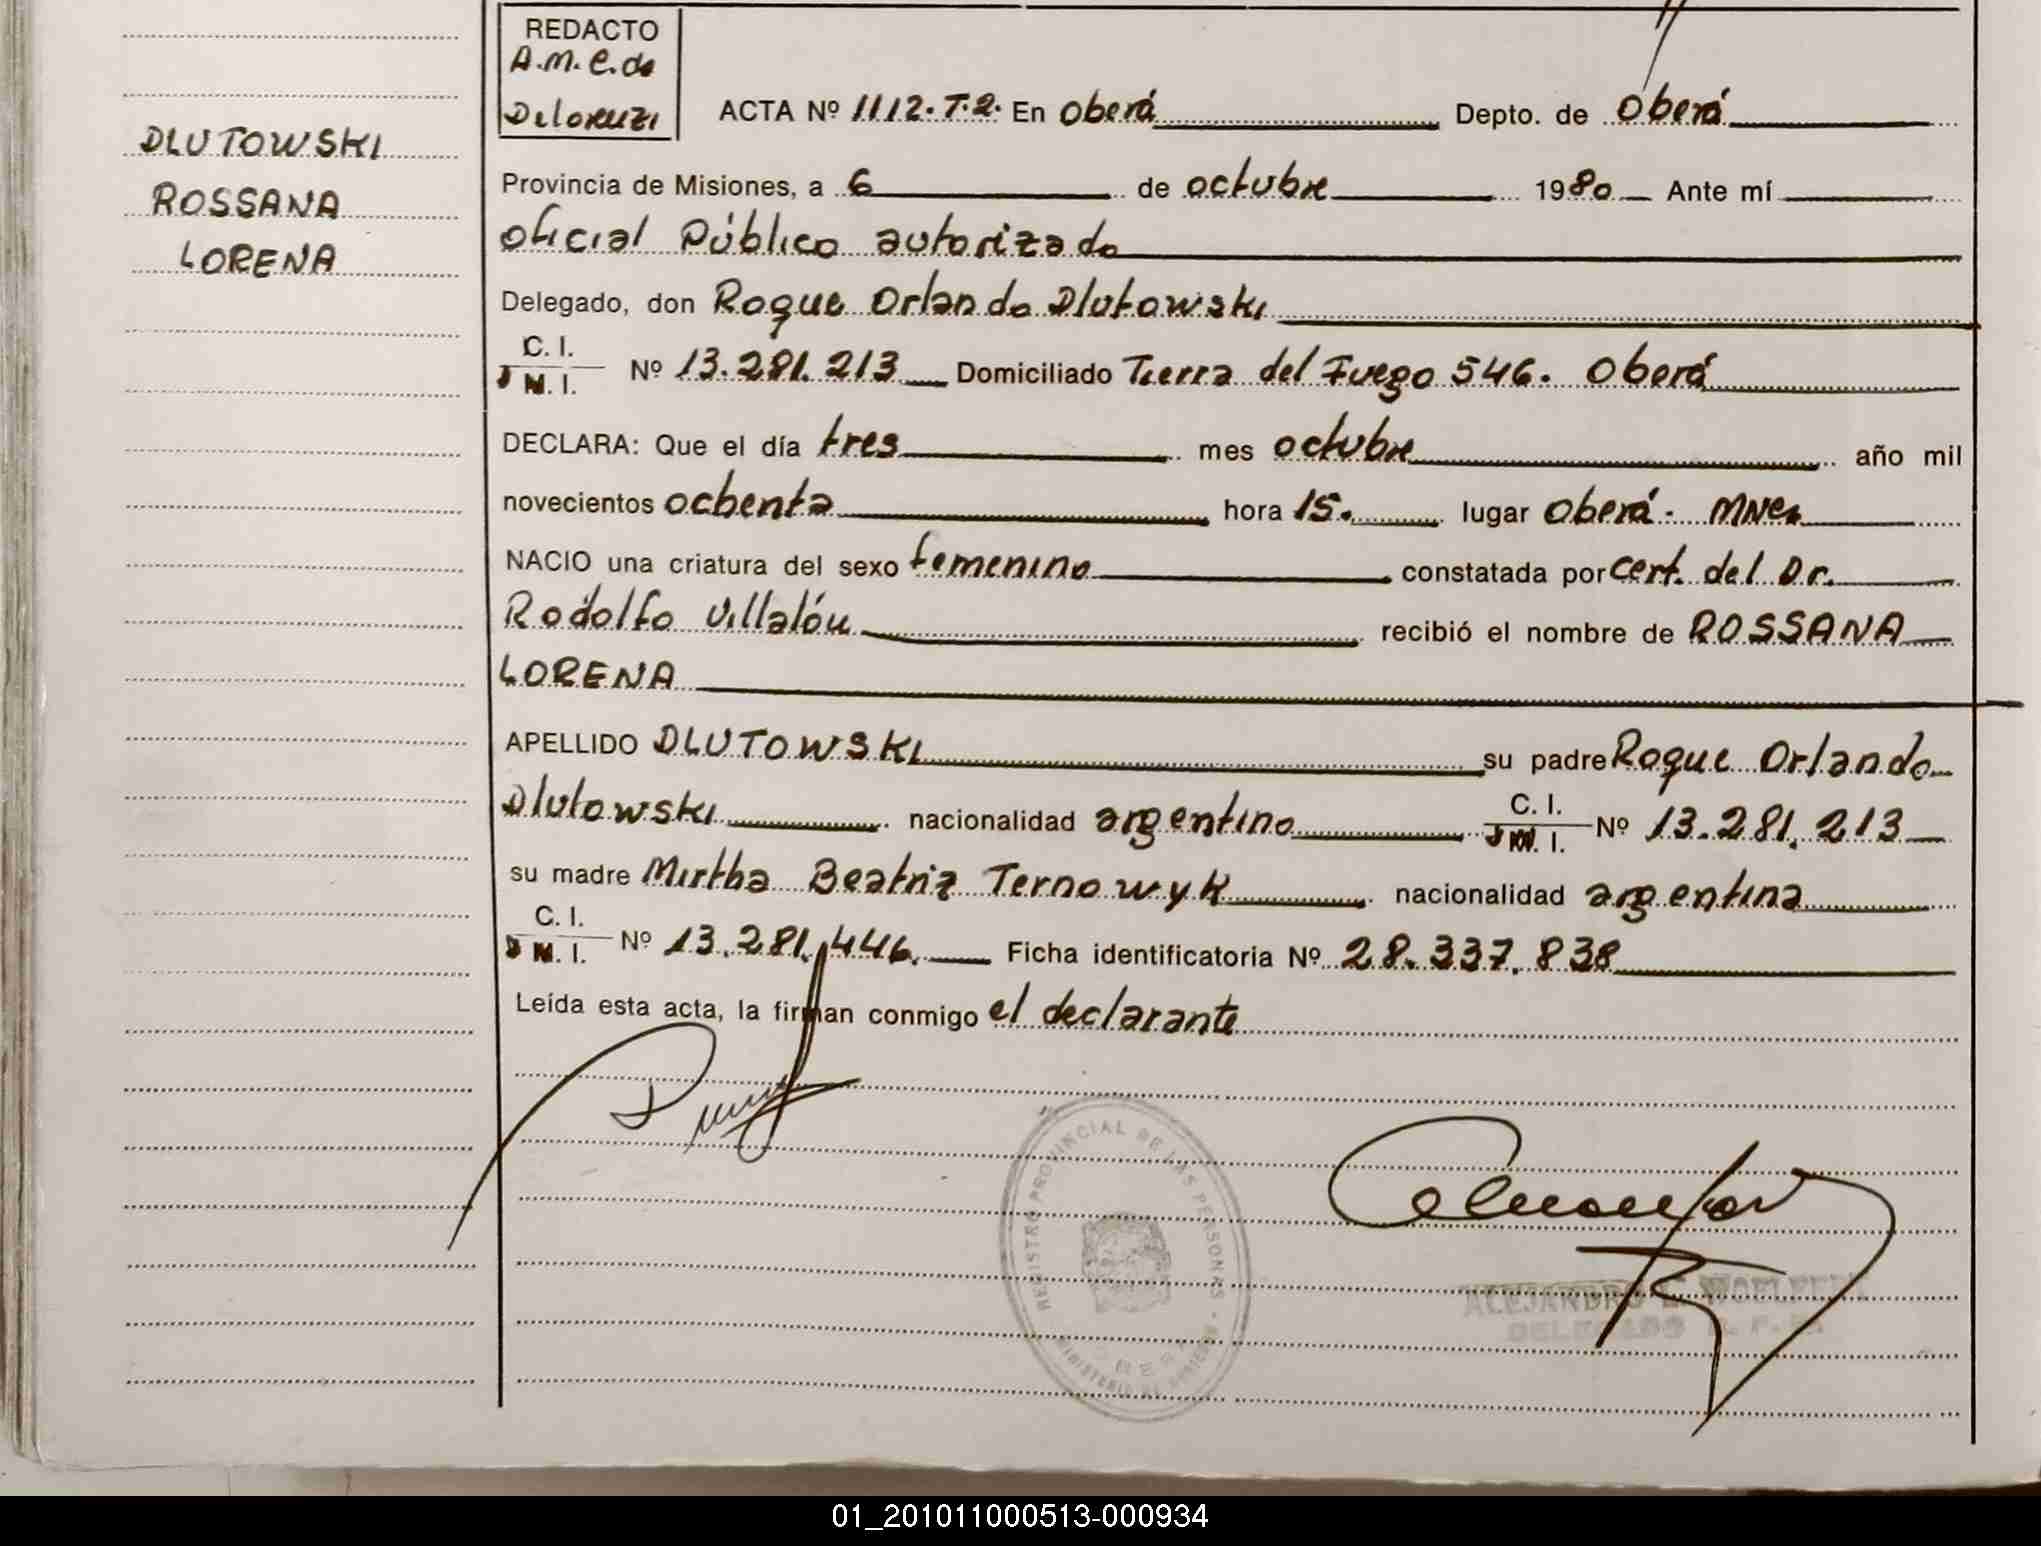 REDACTO
A.M.C. de
Delorenzi
DLUTOWSKI
ROSSANA
LORENA
ACTA Nº 1112.T.2. En Oberá Depto. de Oberá
Provincia de Misiones, a 6 de octubre 1980 Ante mí
Oficial Público autorizado
Delegado, don Roque Orlando Dlutowski
C. I.
N. I. Nº 13.281.213 Domiciliado Tierra del Fuego 546. Oberá
DECLARA: Que el día tres mes octubre año mil
novecientos ochenta hora 15. lugar Oberá. Mnes
NACIO una criatura del sexo femenino constatada por cert. del Dr.
Rodolfo Villalón recibió el nombre de ROSSANA
LORENA
APELLIDO DLUTOWSKI su padre Roque Orlando
Dlutowski nacionalidad argentino C. I. Nº 13.281.213
su madre Mirtha Beatriz Ternowyk nacionalidad argentina
C. I.
Nº 13.281.446. Ficha identificatoria Nº 28.337.838
Leída esta acta, la firman conmigo el declarante
REGISTRO PROVINCIAL DE LAS PERSONAS
ALEJANDRO
DELEGADO
01_201011000513-000934